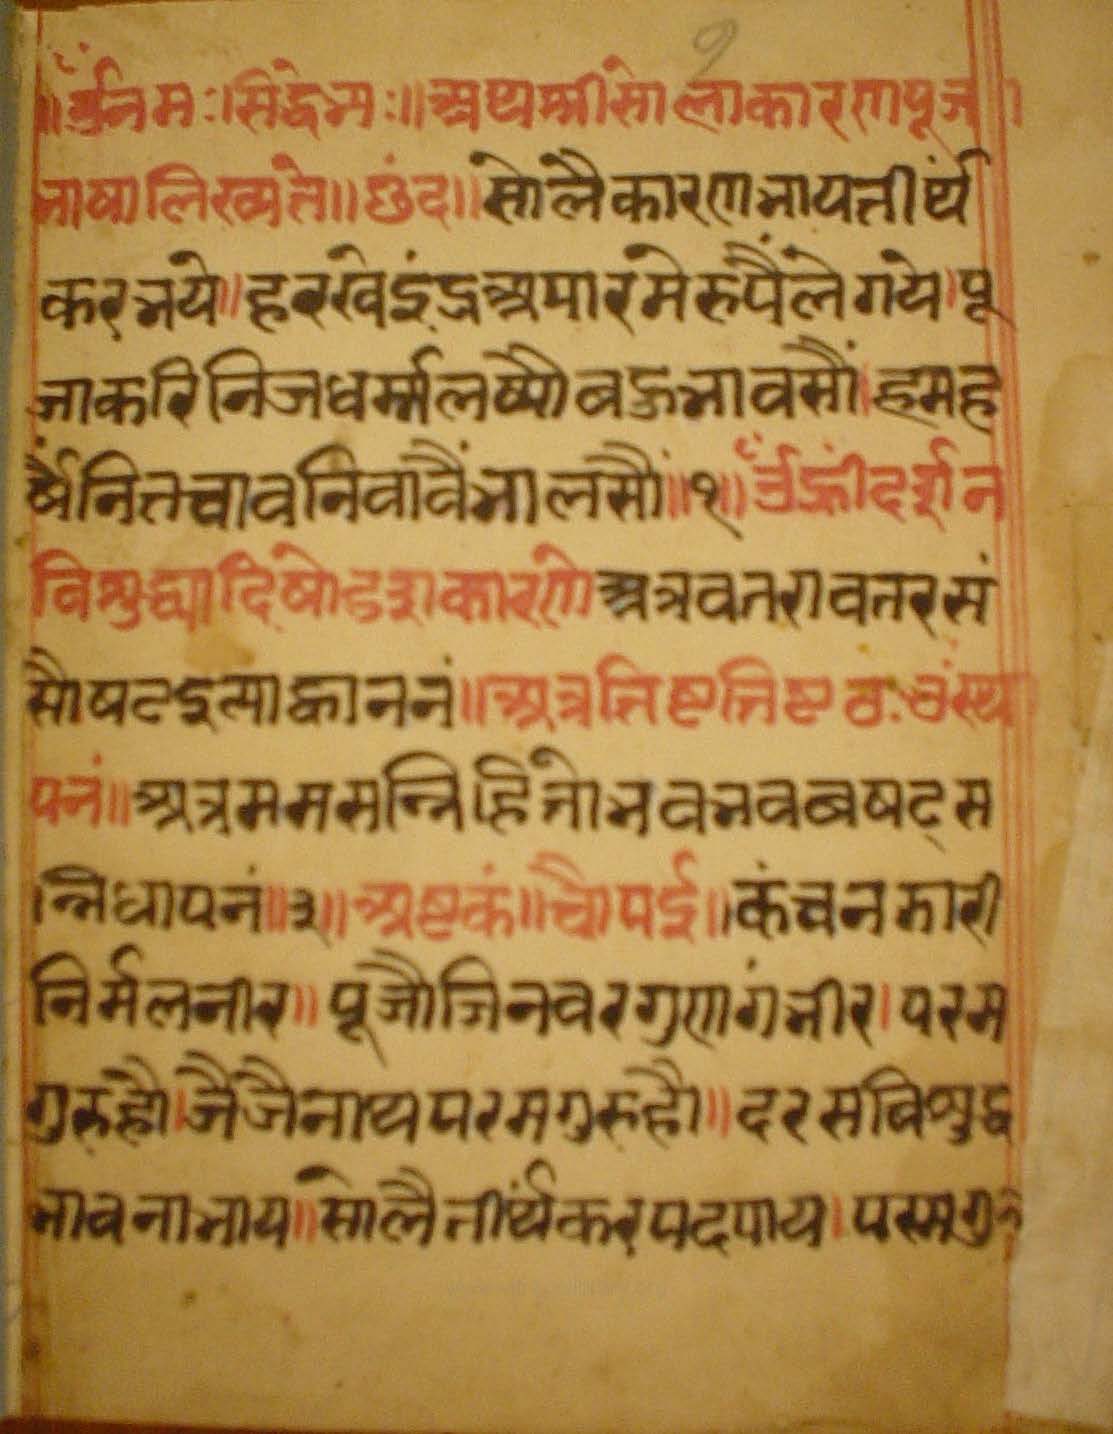 ॥ॐनमःसिद्धेभ्यः॥अथश्रीसोलाकारणपूजा
भाषालिख्यते॥छंद॥सोलैकारणभायतीर्थं
करभये॥हरखेइंद्रअपारमेरुपैंलेगये।पू
जाकरिनिजधर्म्मलष्षौबऊभावसौं।हमह
र्षैंनितचावनिवावैंभालसौं॥१॥ॐह्रींदर्शन
विशुद्ध्यादिषोडशकारणे अत्रवतरावतरसं
सौषटइत्याह्वाननं॥अत्रतिष्टतिष्ट ठःठःस्थ
पनं॥अत्रममसन्निहितोभवभवबषट्स
न्निधापनं॥३॥अष्टकं॥चौपई॥कंचनझारी
निर्मलनीर॥पूजौजिनवरगुणगंभीर।परम
गुरुहौ।जैजैनाथपरमगुरुहौ॥दरसविशुद्ध
भावनाभाय॥सोलैतीर्थंकरपदपाय।परमगुरु